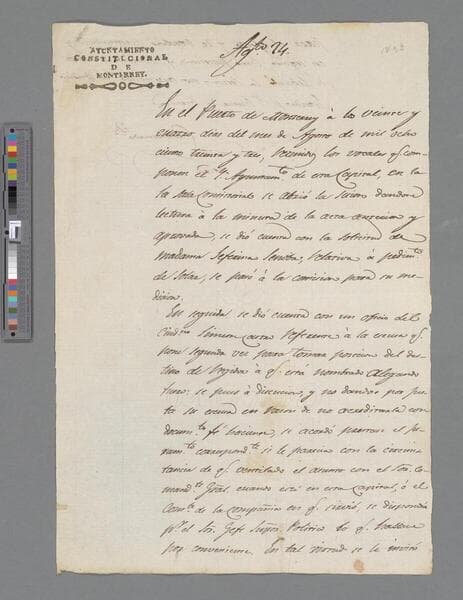 AYUNTAMIENTO
CONSTITUCIONAL
DE
MONTERREY.
Agto 24.
En el Puerto de Monterrey á los veinte y
cuatro dias del mes de Agosto de mil ocho
cientos treinta y tres, reunidos los vocales qe com-
ponen el Ye Ayuntamto de esta Capital, en la
la Sala Consistorial se abrió la sesion dandose
lectura á la minuta de la acta anterior y
aprovada, se dió cuenta con la solicitud de
Madama relativa á pedimto
de Solar, se pasó á la comision para su me-
dicion.
En seguida se dió cuenta con un oficio del
Ciudno Simeon Castro referente á la escusa qe
pone segunda vez para tomar posesion del des-
tino de Regidor á qe está nombrado alegando
fuero: se puso á discucion, y no dandose por
su escusa en razon de no acreditarla con
documto fe haciente, se acordó
corresponde si le parecia con la circuns-
tancia de qe ventilado el asunto con el Sor Co-
mandte Gral cuando esté en esta Capital, ó el
Comte de la compañia en qe sirvió, se disponda
pr el Sor Gefe Supor Politico lo qe hallare
por conveniente. En tal virtud se le